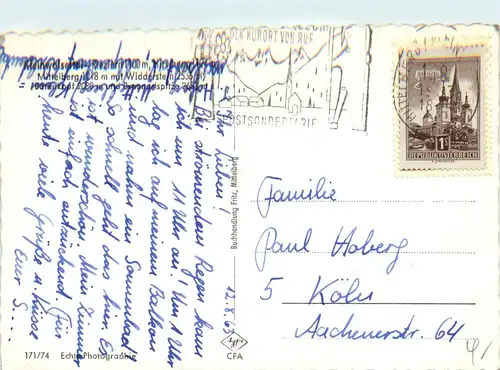 Mittelberg 1218 m mit Widderstein 2536 m
DER KURORT VON RUF
POSTSONDERTARIF
1 S
REPUBLIK ÖSTERREICH
12.8.63
Ihr Lieben!
Bei strömendem Regen kam
ich um 11 Uhr an! Um 1 Uhr
lag ich auf meinem Balkon
und nahm ein Sonnenbad
So schnell geht das hier. Es
ist wunderschön. Mein Zimmer
ist einfach entzückend. Für
heute viele Grüße u. Küsse
Eure S...
Buchhandlung Fritz, Mittelberg
CFA
171/74 Echte Photographie
Familie
Paul Hoberg
5 Köln
Aachenerstr. 64